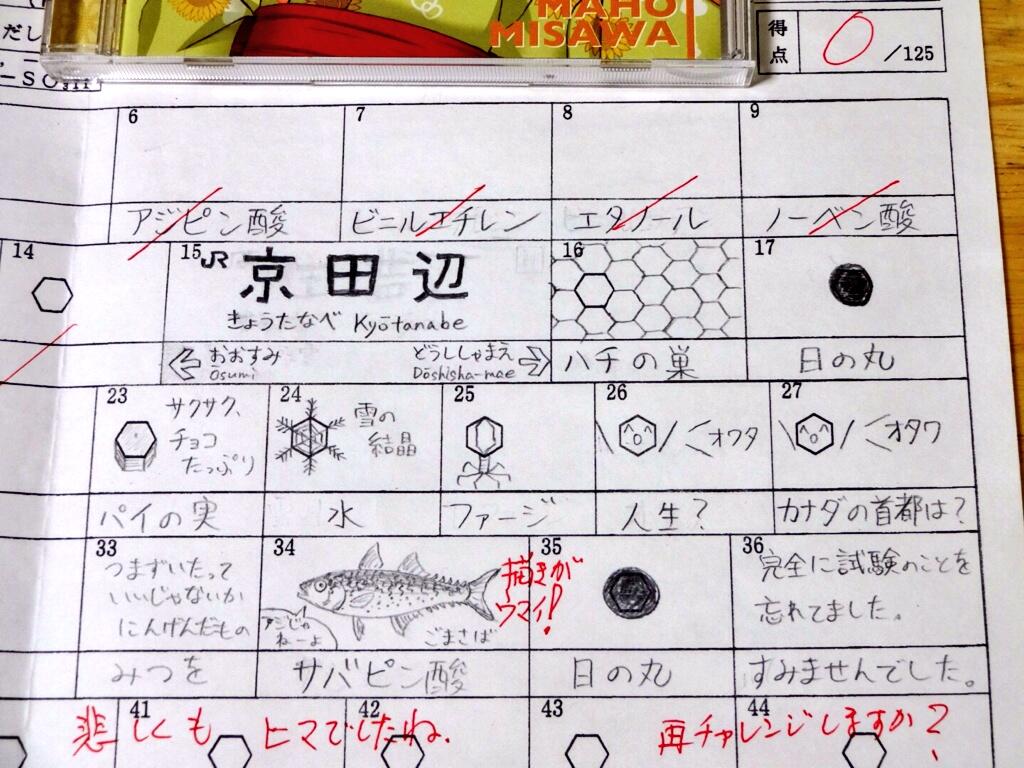 MAHO
MISAWA
だし
得点
0
/125
6
7
8
9
アジピン酸
ビニルエチレン
エタノール
ノーベン酸
14
15
JR
京田辺
きょうたなべ Kyōtanabe
おおすみ
Ōsumi
どうししゃまえ
Dōshisha-mae
16
ハチの巣
17
日の丸
23
サクサク、
チョコ
たっぷり
パイの実
24
雪の
結晶
水
25
ファージ
26
オワタ
人生?
27
オタワ
カナダの首都は?
33
つまずいたって
いいじゃないか
にんげんだもの
みつを
34
アジじゃ
ねーよ
ごまさば
サバピン酸
描きが
ウマイ!
35
日の丸
36
完全に試験のことを
忘れてました。
すみませんでした。
41
42
43
44
悲しくもヒマでしたね.
再チャレンジしますか?